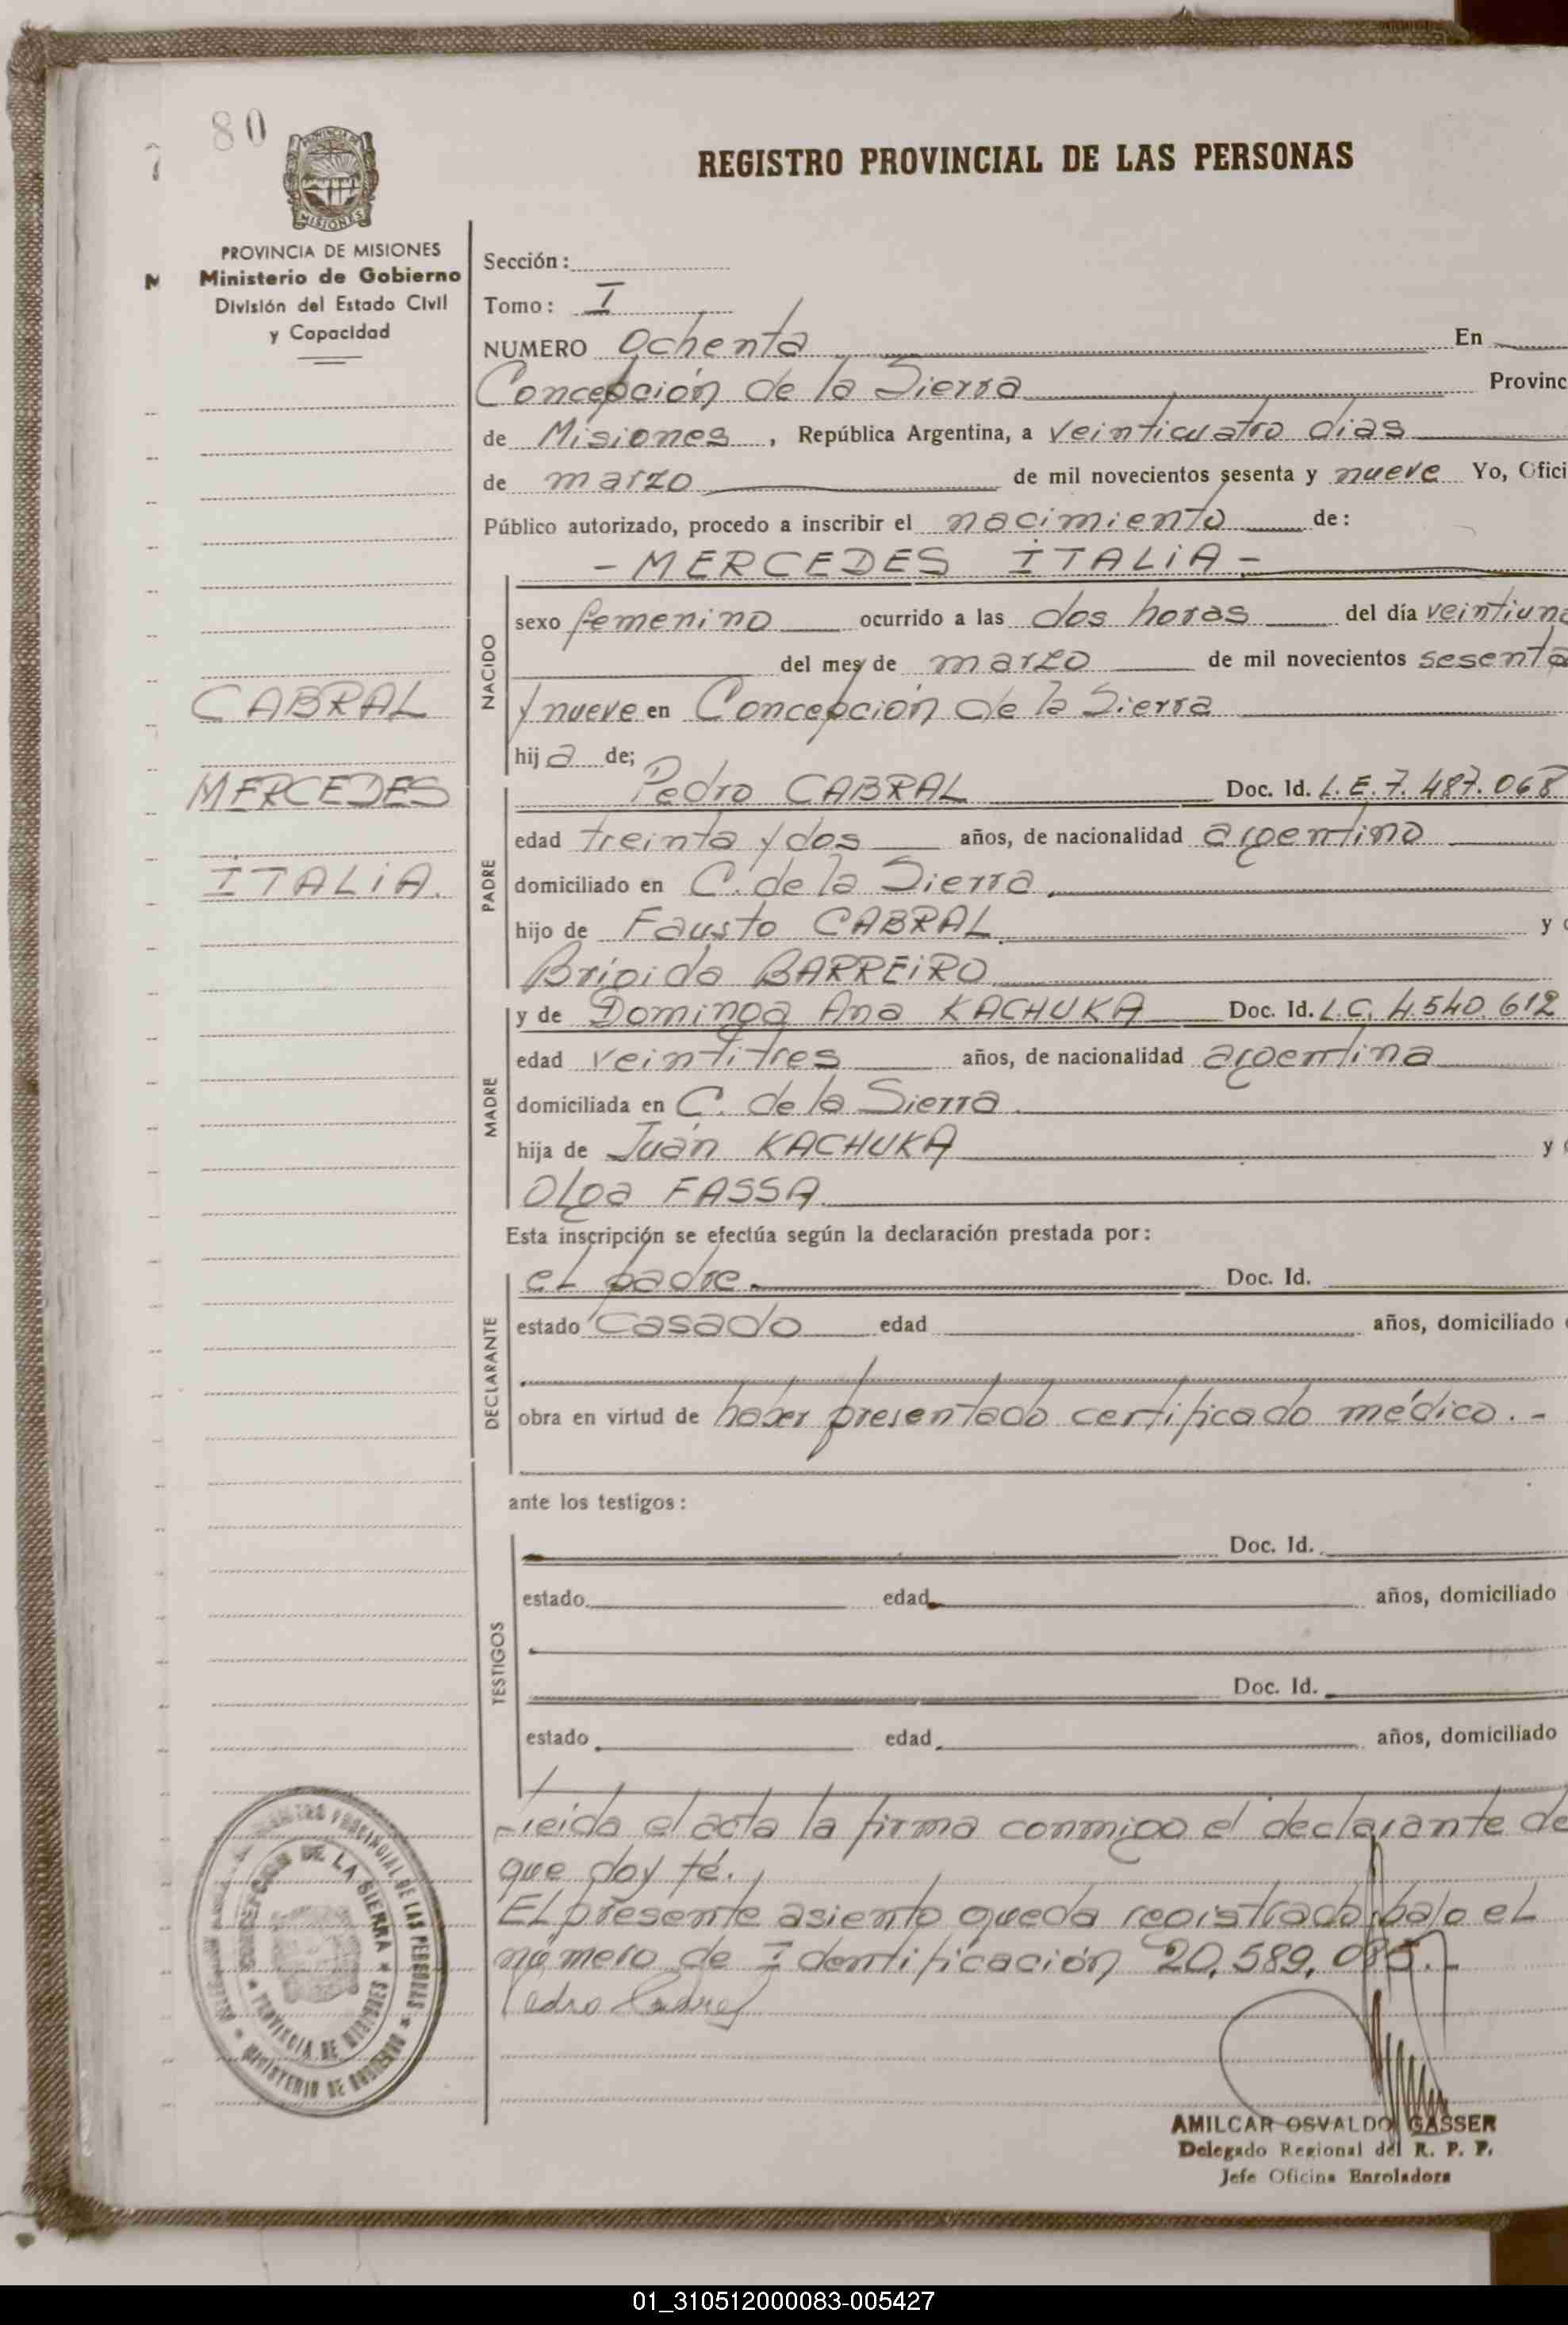 80
REGISTRO PROVINCIAL DE LAS PERSONAS
MISIONES
PROVINCIA DE MISIONES
Ministerio de Gobierno
División del Estado Civil
y Capacidad
CABRAL
MERCEDES
ITALIA.
Sección:
Tomo: I
NUMERO Ochenta En
Concepción de la Sierra Provinc
de Misiones, República Argentina, a veinticuatro días
de marzo de mil novecientos sesenta y nueve Yo, Ofici
Público autorizado, procedo a inscribir el nacimiento de:
- MERCEDES ITALIA -
NACIDO
sexo femenino ocurrido a las dos horas del día veintiuno
del mes de marzo de mil novecientos sesenta
y nueve en Concepción de la Sierra
hija de;
PADRE
Pedro CABRAL Doc. Id. L.E. 7.487.068
edad treinta y dos años, de nacionalidad argentino
domiciliado en C. de la Sierra.
hijo de Fausto CABRAL. y
Brígida BARREIRO
MADRE
y de Dominga Ana KACHUKA Doc. Id. L.C. 4.540.612
edad veintitres años, de nacionalidad argentina
domiciliada en C. de la Sierra.
hija de Juan KACHUKA y
Olga FASSA.
Esta inscripción se efectúa según la declaración prestada por:
DECLARANTE
el padre. Doc. Id.
estado casado edad años, domiciliado
obra en virtud de haber presentado certificado médico. -
ante los testigos:
TESTIGOS
Doc. Id.
estado edad años, domiciliado
Doc. Id.
estado edad años, domiciliado
Leida el acta la firma conmigo el declarante de
que doy fé.
El presente asiento queda registrado bajo el
número de Identificación 20.589.085.-
Pedro Cabral
REGISTRO PROVINCIAL DE LAS PERSONAS
MINISTERIO DE GOBIERNO
CONCEPCION DE LA SIERRA
PROVINCIA DE MISIONES
AMILCAR OSVALDO GASSER
Delegado Regional del R. P. P.
Jefe Oficina Enroladora
01_310512000083-005427